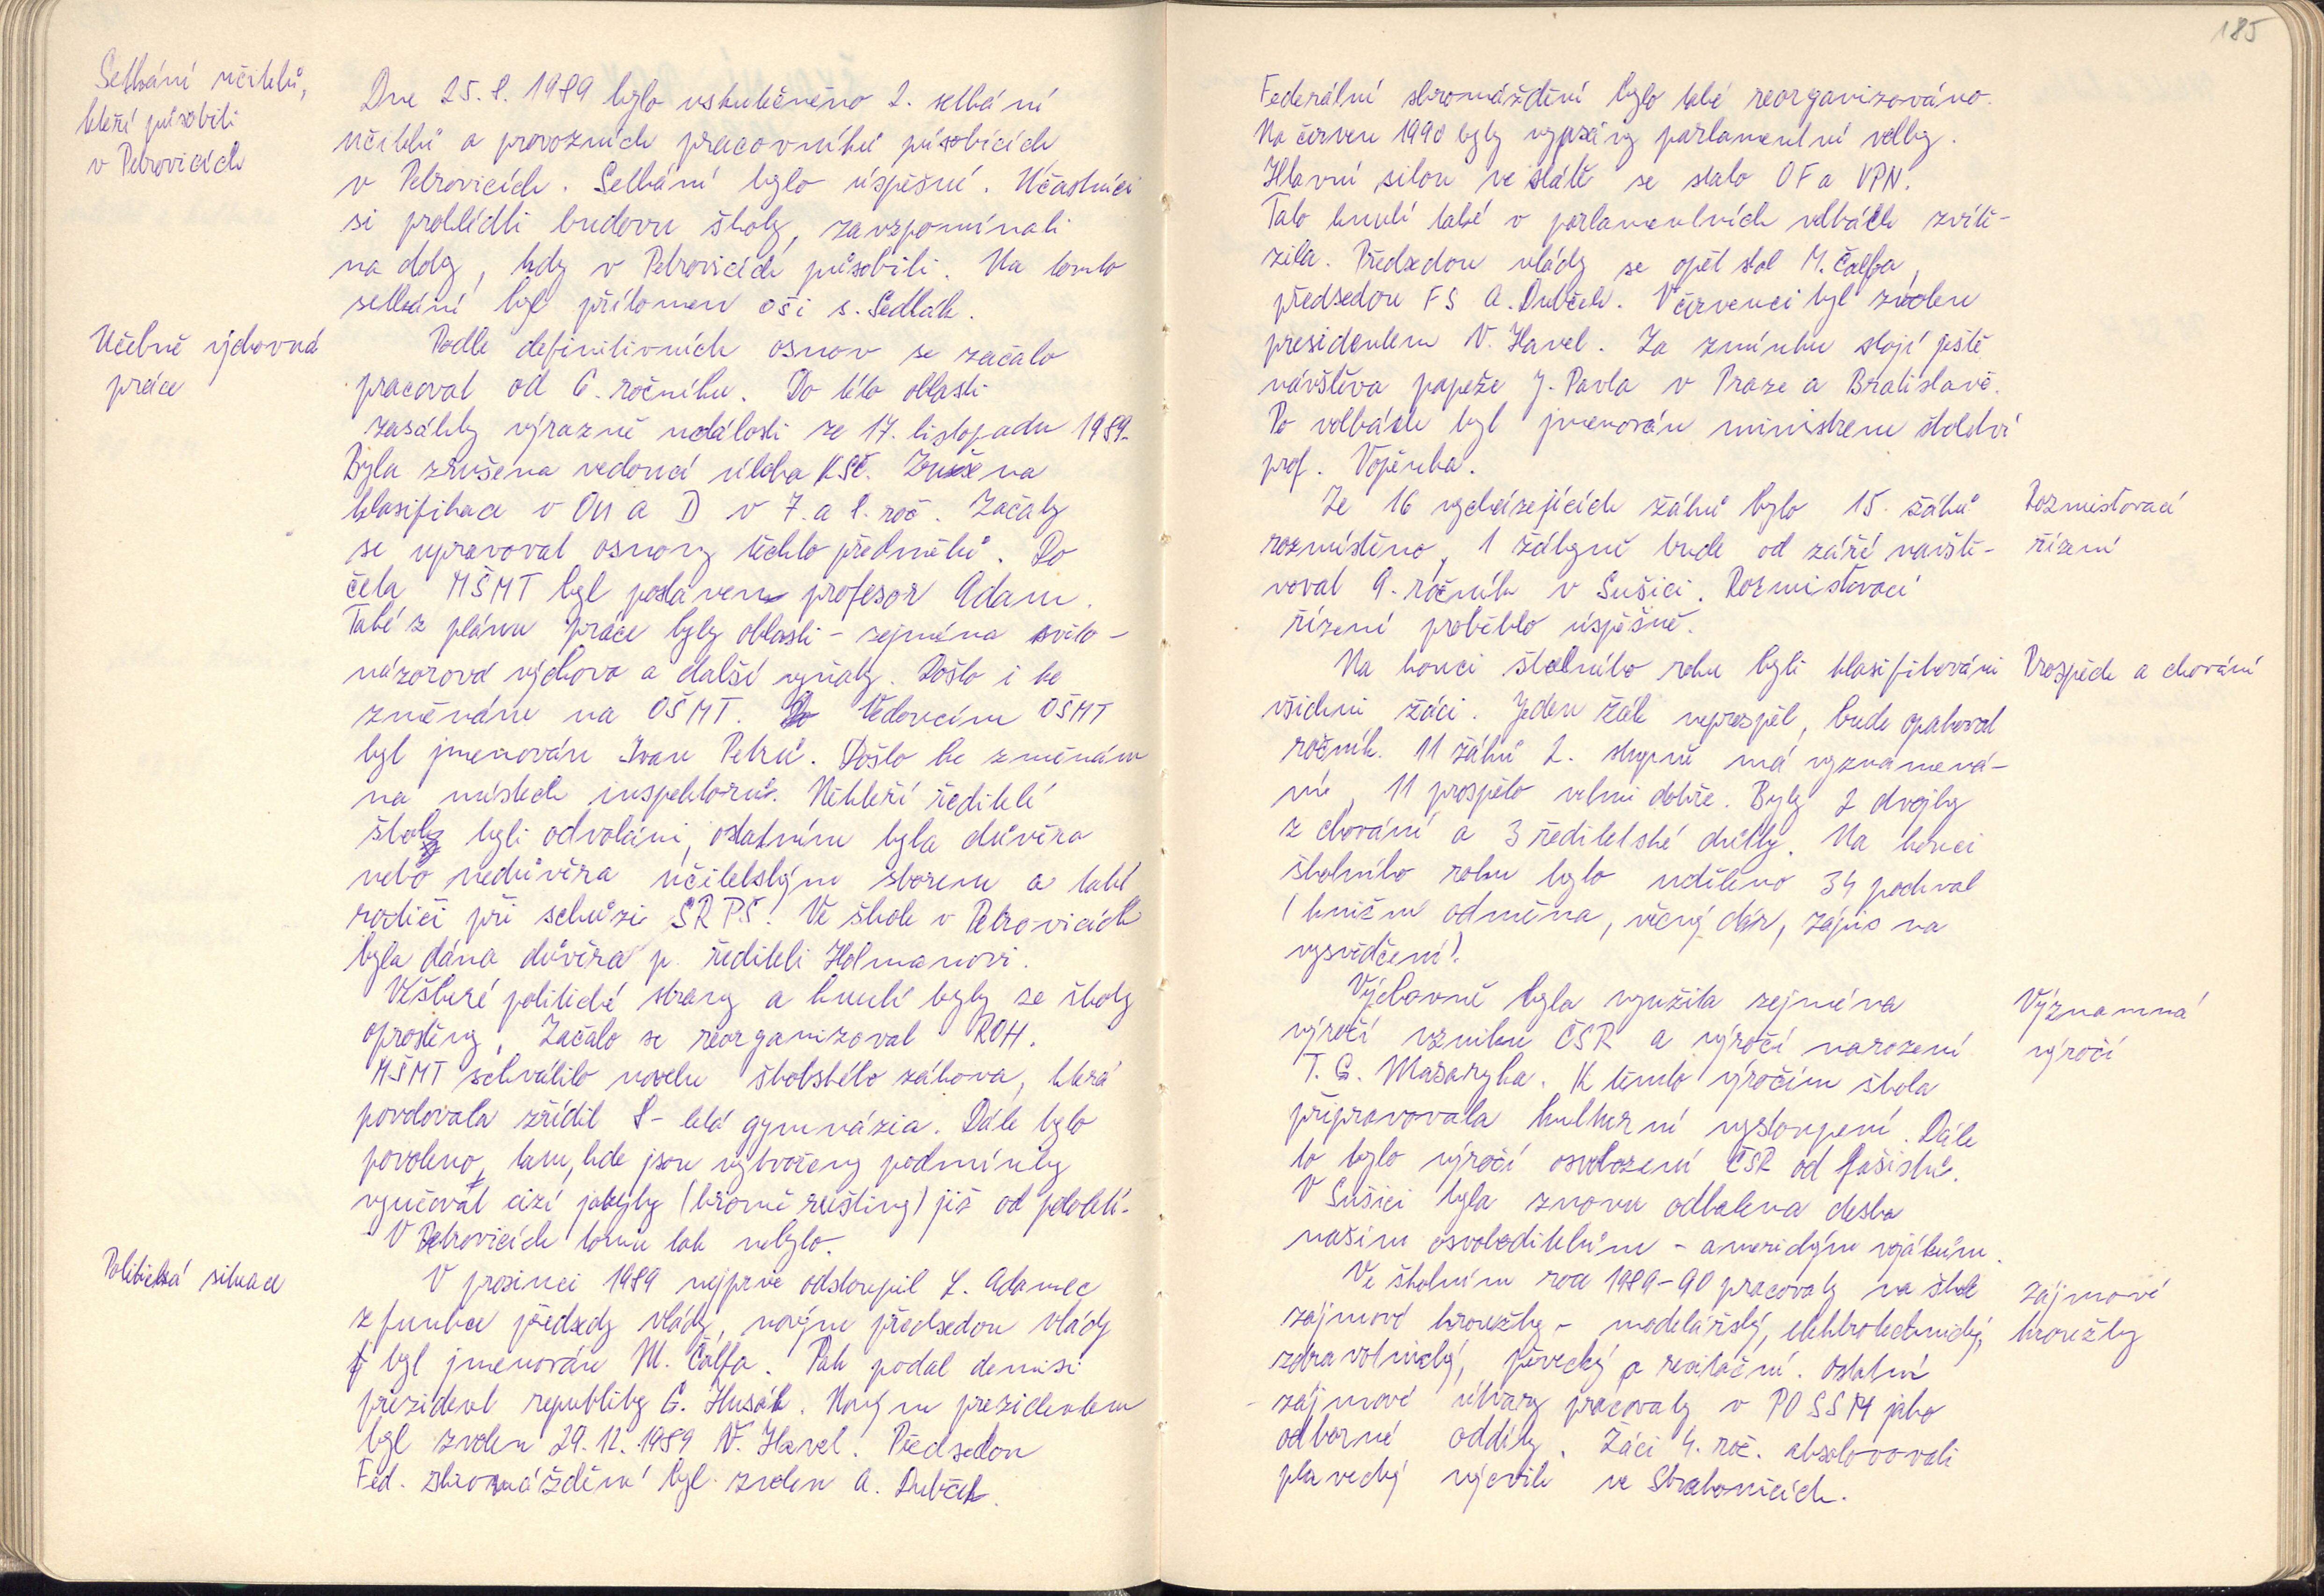 Setkání učitelů,
kteří působili
v Petrovicích
Dne 25. 8. 1989 bylo uskutečněno 2. setkání
učitelů a provozních pracovníků působících
v Petrovicích. Setkání bylo úspěšné. Účastníci
si prohlédli budovu školy, zavzpomínali
na doby, kdy v Petrovicích působili. Na tomto
setkání byl přítomen oši s. Sedlák.
Učebně výchovná
práce
Podle definitivních osnov se začalo
pracovat od 6. ročníku. Do této oblasti
zasáhly výrazně události ze 17. listopadu 1989.
Byla zrušena vedoucí úloha KSČ. Zrušena
klasifikace v ON a D v 7. a 8. roč. Začaly
se upravovat osnovy těchto předmětů. Do
čela MŠMT byl postaven profesor Adam.
Také z plánu práce byly oblasti - zejména světo-
názorová výchova a další vyňaty. Došlo i ke
změnám na OŠMT. Vedoucím OŠMT
byl jmenován Ivan Petrů. Došlo ke změnám
na místech inspektorů. Někteří ředitelé
školy byli odvoláni, ostatním byla důvěra
nebo nedůvěra učitelským sborem a také
rodiči při schůzi SRPŠ. Ve škole v Petrovicích
byla dána důvěra p. řediteli Holmanovi.
Veškeré politické strany a hnutí byly ze školy
oproštěny. Začalo se reorganizovat ROH.
MŠMT schválilo novelu školského zákona, která
povolovala zřídit 8-letá gymnázia. Dále bylo
povoleno, tam, kde jsou vytvořeny podmínky
vyučovat cizí jazyky (kromě ruštiny) již od
V Petrovicích tomu tak nebylo.
Politická situace
V prosinci 1989 nejprve odstoupil L. Adamec
z funkce předsedy vlády, novým předsedou vlády
byl jmenován M. Čalfa. Pak podal demisi
prezident republiky G. Husák. Novým prezidentem
byl zvolen 29. 12. 1989 V. Havel. Předsedou
Fed. shromáždění byl zvolen A. Dubček.
185
Federální shromáždění bylo také reorganizováno.
Na červen 1990 byly vypsány parlamentní volby.
Hlavní silou ve státě se stalo OF a VPN.
Tato hnutí také v parlamentních volbách zvítě-
zila. Předsedou vlády se opět stal M. Čalfa,
předsedou FS A. Dubček. V červenci byl zvolen
presidentem V. Havel. Za zmínku stojí ještě
návštěva papeže J. Pavla v Praze a Bratislavě.
Po volbách byl jmenován ministrem školství
prof. Vopěnka.
Ze 16 vycházejících žáků bylo 15 žáků
rozmístěno, 1 žákyně bude od září navště-
vovat 9. ročník v Sušici. Rozmisťovací
řízení proběhlo úspěšně.
Rozmisťovací
řízení
Na konci školního roku byli klasifikováni
všichni žáci. Jeden žák neprospěl, bude opakovat
ročník. 11 žáků 2. stupně má vyznamená-
ní, 11 prospělo velmi dobře. Byly 2 dvojky
z chování a 3 ředitelské důtky. Na konci
školního roku bylo uděleno 34 pochval
(knižní odměna, věcný dar, zápis na
vysvědčení).
Prospěch a chování
Výchovně byla využita zejména
výročí vzniku ČSR a výročí narození
T. G. Masaryka. K těmto výročím škola
připravovala kulturní vystoupení. Dále
to bylo výročí osvobození ČSR od fašistů.
V Sušici byla znovu odhalena deska
našim osvoboditelům - americkým vojákům.
Významná
výročí
Ve školním roce 1989-90 pracovaly na škole
zájmové kroužky - modelářský, elektrotechnický,
zdravotnický, pěvecký a recitační. Ostatní
zájmové útvary pracovaly v PO SSM jako
odborné oddíly. Žáci 4. roč. absolvovali
plavecký výcvik ve Strakonicích.
Zájmové
kroužky